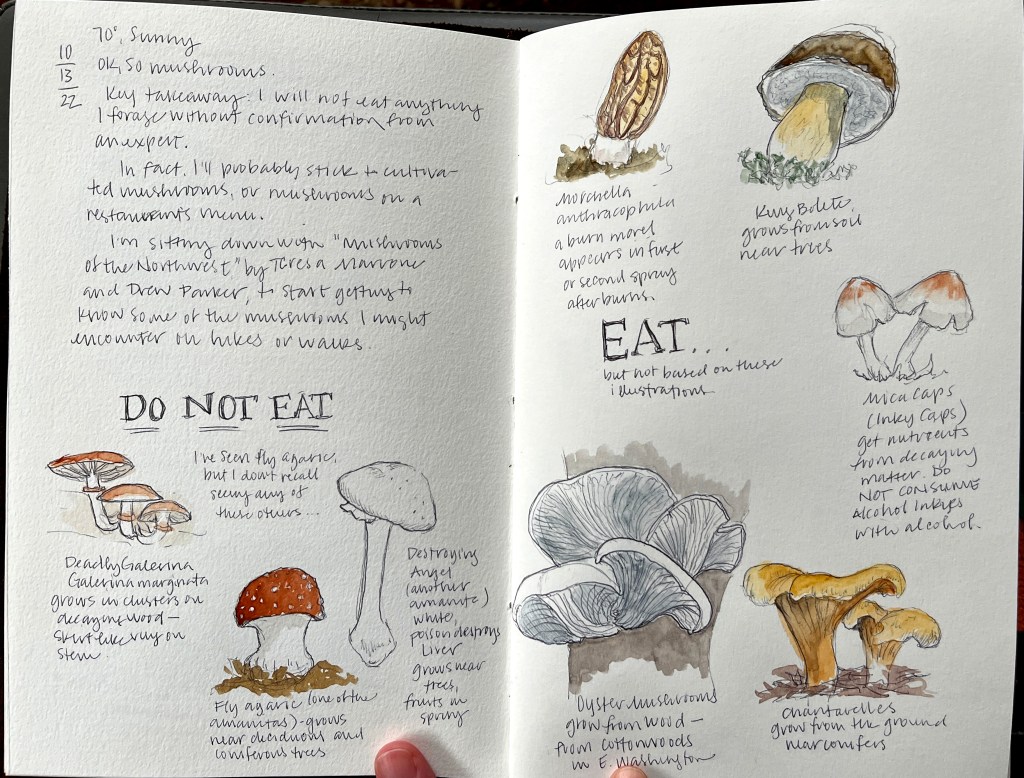 10
13
22
70°, Sunny
OK, so mushrooms.
Key takeaway: I will not eat anything
I forage without confirmation from
an expert.
In fact, I'll probably stick to cultiva-
ted mushrooms, or mushrooms on a
restaurant's menu.
I'm sitting down with "Mushrooms
of the Northwest" by Teresa Marrone
and Drew Parker, to start getting to
know some of the mushrooms I might
encounter on hikes or walks.
DO NOT EAT
I've seen fly agaric,
but I don't recall
seeing any of
these others...
Deadly Galerina
Galerina marginata
grows in clusters on
decaying wood –
skirt like ring on
stem.
Fly agaric (one of the
amanitas) - grows
near deciduous and
coniferous trees
Destroying
Angel
(another
amanita)
white,
poison destroys
liver
grows near
trees,
fruits in
spring
Morchella
anthracophila
a burn morel
appears in first
or second spring
after burns.
King Bolete,
grows from soil
near trees
EAT...
but not based on these
illustrations.
Mica Caps
(Inky Caps)
get nutrients
from decaying
matter. DO
NOT CONSUME
Alcohol Inkys
with alcohol.
Oyster Mushrooms
grow from wood –
from cottonwoods
in E. Washington
Chantarelles
grow from the ground
near conifers